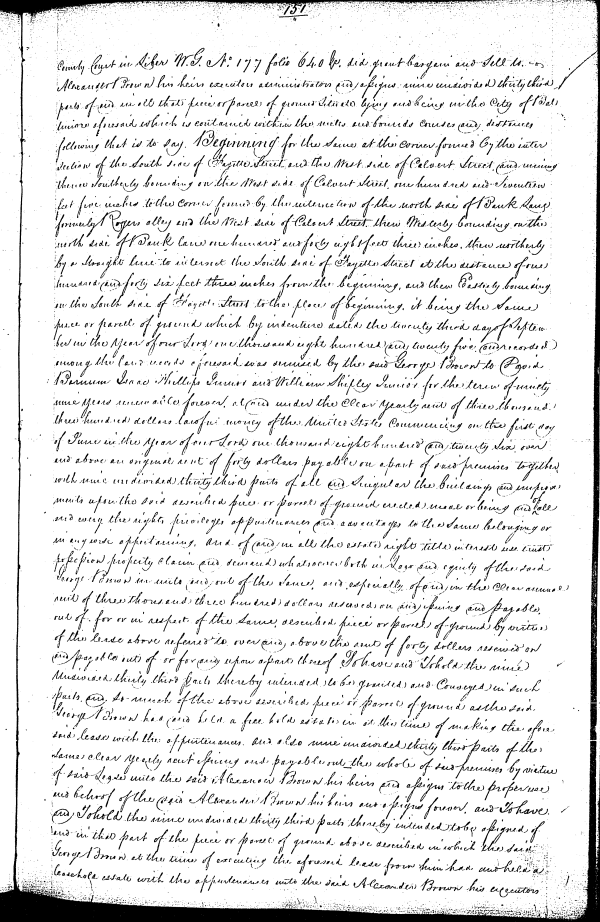 151
County Court in Liber W.G. No. 177 folio 640 &c. did grant bargain and sell to
Alexander Brown his heirs executors administrators and assigns nine undivided thirty third
parts of and in all that piece or parcel of ground situate lying and being in the City of Bal
timore aforesaid which is contained within the metes and bounds courses and distances
following that is to say, Beginning for the same at the corner formed by the inter
section of the South side of Fayette Street and the West side of Calvert Street, and running
thence Southerly bounding on the West side of Calvert Street, one hundred and Seventeen
feet five inches to the corner formed by the intersection of the north side of Bank Lane
formerly Rogers alley and the West side of Calvert Street, then Westerly bounding on the
north side of Bank lane one hundred and forty eight feet three inches, then northerly
by a straight line to intersect the South side of Fayette Street at the distance of one
hundred and forty six feet three inches from the beginning, and then Easterly bounding
on the South side of Fayette Street to the place of beginning, it being the same
piece or parcel of ground which by indenture dated the twenty third day of Septem
ber in the Year of our Lord one thousand eight hundred and twenty five and recorded
among the land records aforesaid was demised by the said George Brown to David
Barnum Isaac Phillips Junior and William Shipley Junior for the term of ninety
nine years renewable forever, at and under the clear yearly rent of three thousand
three hundred dollars lawful money of the United States Commencing on the first day
of June in the Year of our Lord one thousand eight hundred and twenty six, over
and above an original rent of forty dollars payable on a part of said premises together
with nine undivided thirty third parts of all and singular the buildings and improve
ments upon the said described piece or parcel of ground erected made or being and of all
and every the rights privileges appurtenances and advantages to the same belonging or
in anywise appertaining. And of and in all the estate right title interest use trust
possession property claim and demand whatsoever both in Law and equity of the said
George Brown in unto and out of the same, and especially of and in the clear annual
rent of three thousand three hundred dollars reserved on and issuing and payable
out of, for or in respect of the same, described piece or parcel of ground by virtue
of the lease above referred to over and above the rent of forty dollars reserved on
and payable out of or for and upon a part thereof To have and To hold the nine
Undivided thirty third Parts thereby intended to be granted and Conveyed in such
parts and so much of the above described piece or parcel of ground as the said
George Brown had and held a free hold estate in at the time of making the afore
said lease with the appurtenances. And also nine undivided thirty third parts of the
same clear yearly rent issuing and payable out the whole of said premises by virtue
of said Lease unto the said Alexander Brown his heirs and assigns to the proper use
and behoof of the said Alexander Brown his heirs and assigns forever, and To have
and To hold the nine undivided thirty third parts, thereby intended to be assigned of
and in that part of the piece or parcel of ground above described in which the said
George Brown at the time of executing the aforesaid lease from him had and held a
leasehold estate with the appurtenances unto the said Alexander Brown his executors